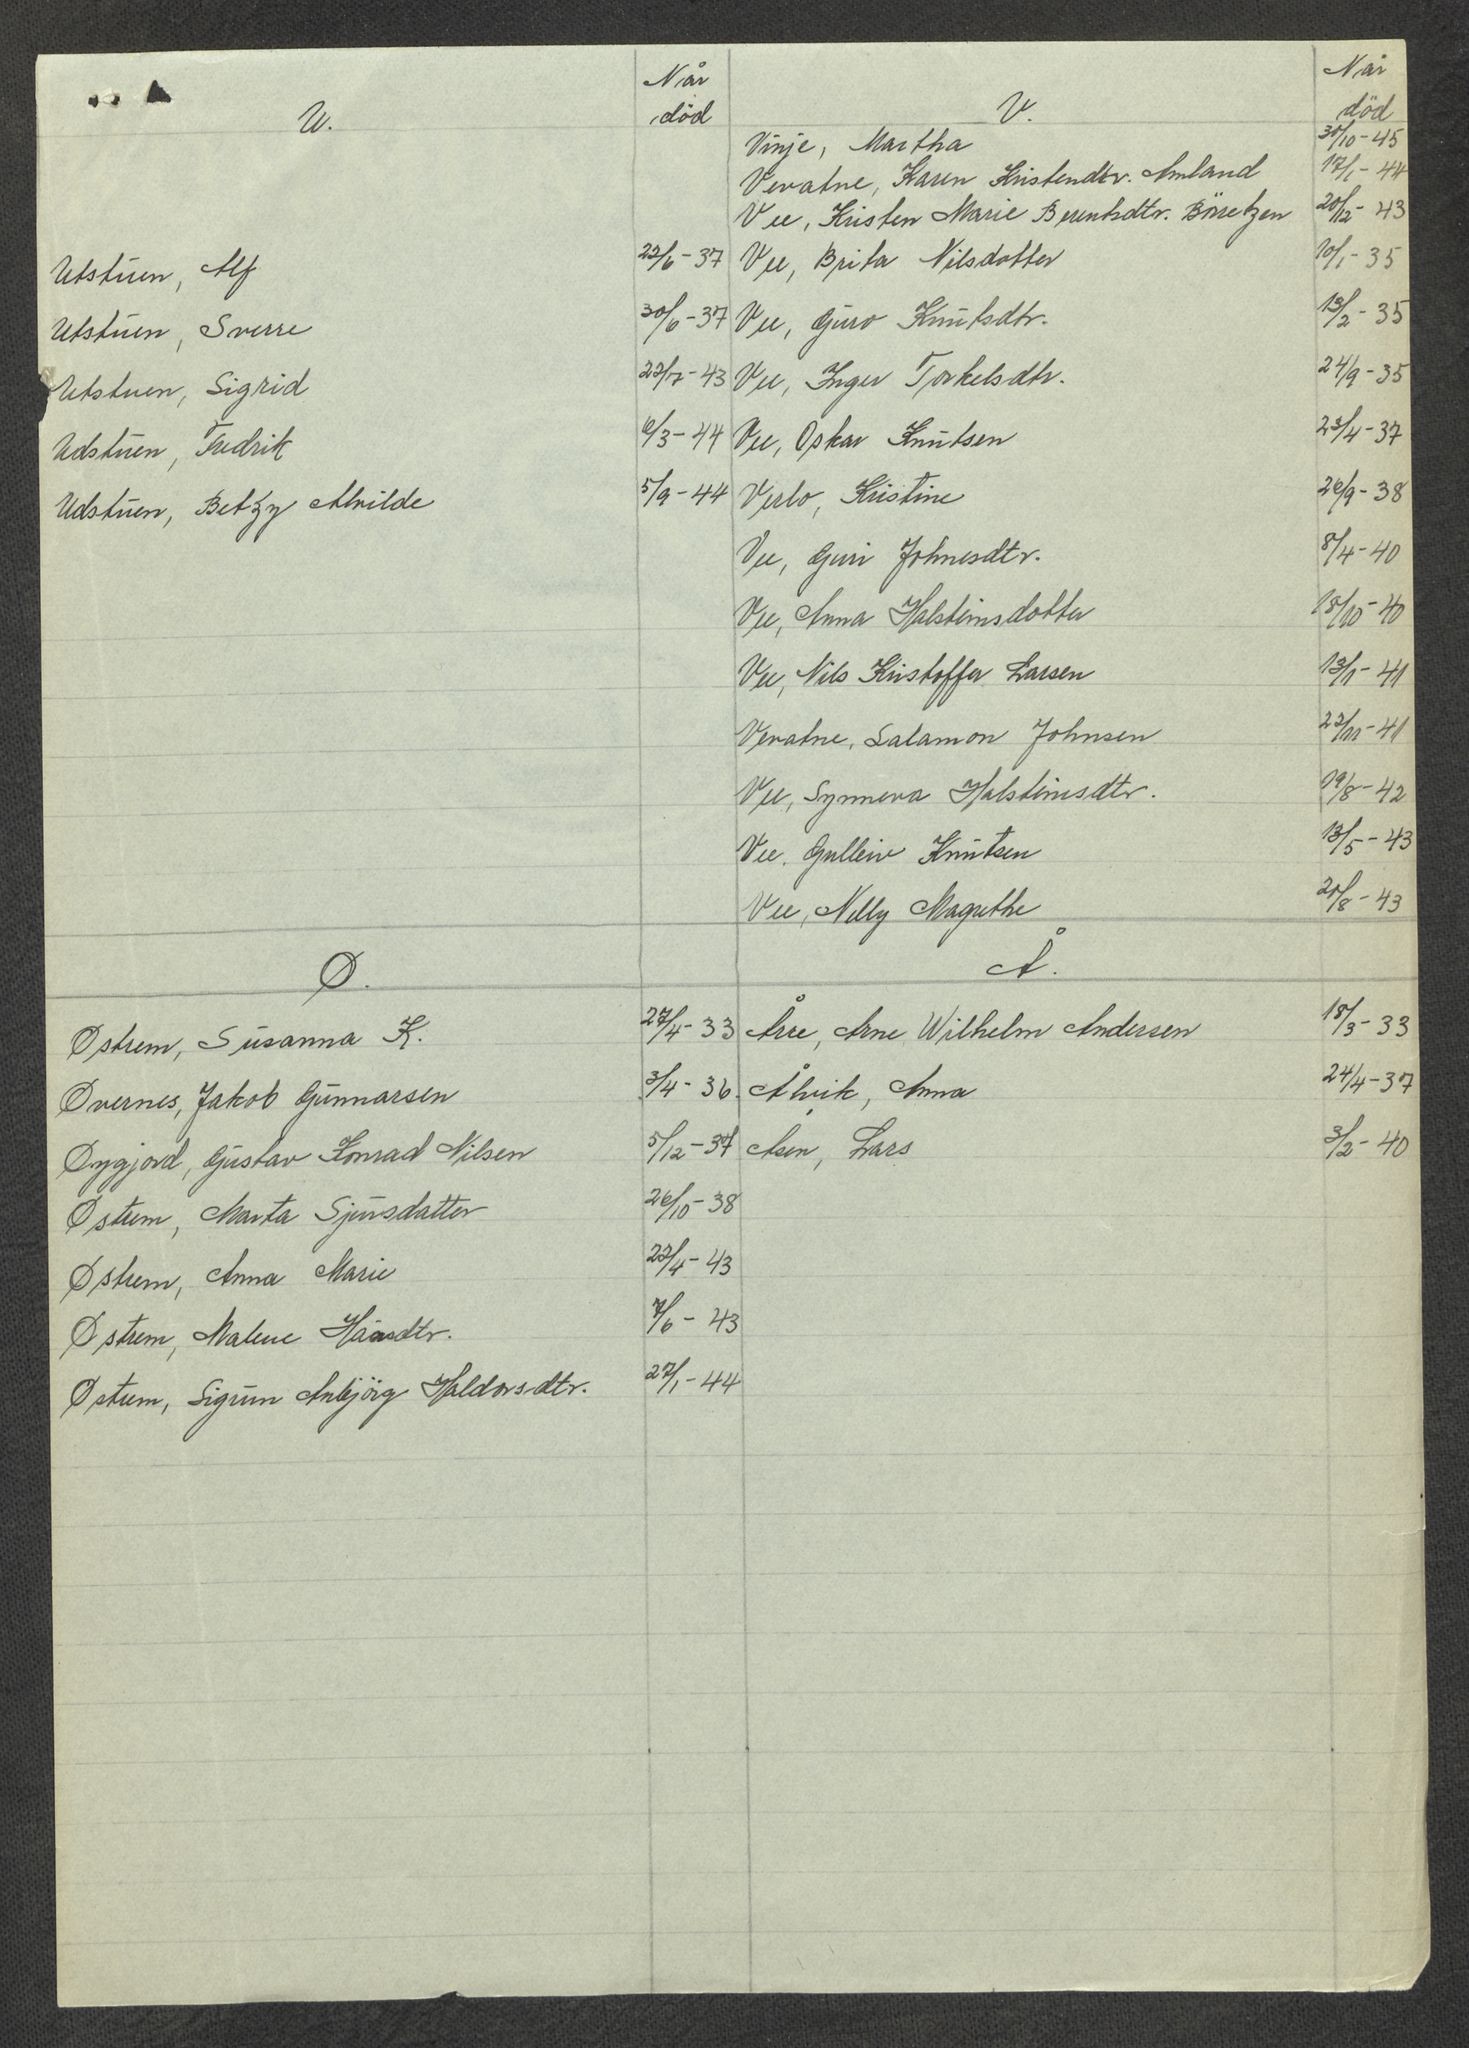 U.
Når
død
Utstuen, Alf 22/6-37
Utstuen, Sverre 30/6-37
Utstuen, Sigrid 22/7-43
Udstuen, Fredrik 6/3-44
Udstuen, Betzy Alvilde 5/9-44
V.
Når
död
Vinje, Martha 30/10-45
Vevatne, Karen Kristendtr. Amland 17/1-44
Vee, Kristen Marie Berentsdtr. Börretzen 20/12-43
Vee, Brita Nilsdotter 10/1-35
Vee, Guro Knutsdtr. 13/2-35
Vee, Inger Torkelsdtr. 24/9-35
Vee, Oskar Knutsen 23/4-37
Kristine 26/9-38
Vee, Guri Johnesdtr. 8/4-40
Vee, Anna Halsteinsdotter 18/10-40
Vee, Nils Kristoffer Larsen 13/1-41
Vevatne, Salamon Johnsen 22/11-41
Vee, Synneva Halsteinsdtr. 19/8-42
Vee, Gulleiv Knutsen 13/5-43
Vee, Nelly Magrethe 20/8-43
Ø.
Østrem, Susanna K. 27/4-33
Øvernes, Jakob Gunnarsen 3/4-36.
Øygjord, Gustav Konrad Nilsen 5/12-37
Østrem, Marta Sjursdatter 26/10-38
Østrem, Anna Marie 22/4-43
Østrem, Malene 7/6-43
Østrem, Sigrun Anbjörg Haldorsdtr. 27/1-44
Å.
Årre, Arne Wilhelm Andersen 18/3-33
Ålvik, Anna 24/4-37
Åsen, Lars 3/2-40